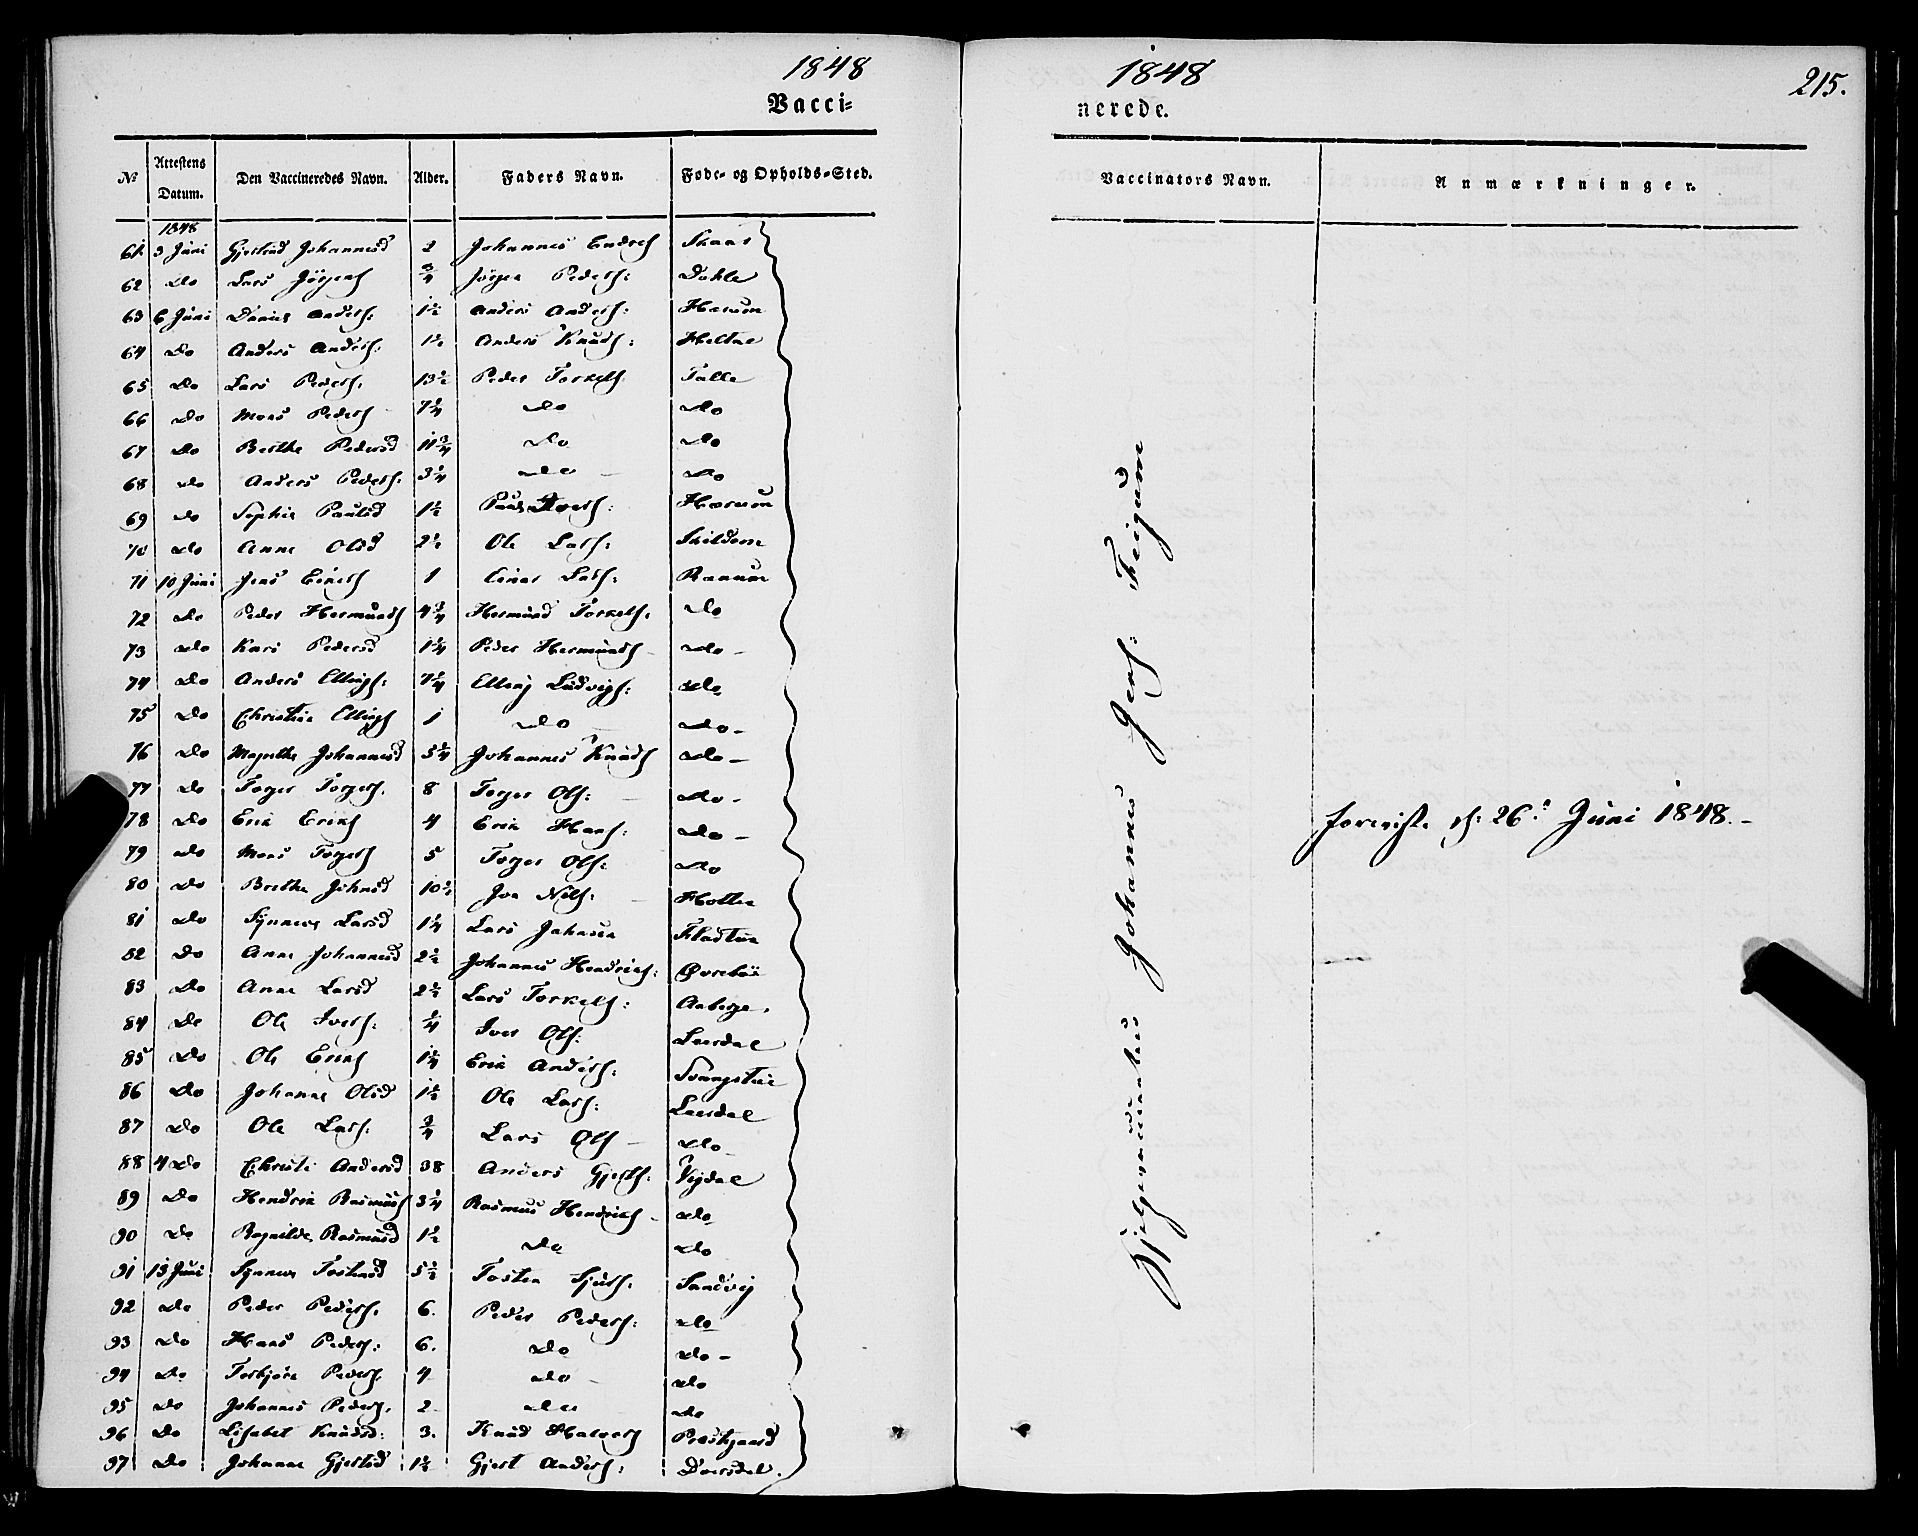 1848
Vacci=
№ Attestens Datum. Den Vaccineredes Navn. Alder. Faders Navn. Føde- og Opholds-Sted.
1848
61. 3 Juni Gjertrud Johannesd 2 Johannes Endres Skaar
62 Do Lars Jørgens 3/4 Jørgen Peders: Dahle
63 6 Juni Anders: 1½ Anders Anders: Harum
64 Do Anders Anders: 1½ Anders Knuds: Heltne
65 Do Lars Peders. 13½ Peder Torkels Talle
66 Do Mons Peders 7¼ Do Do
67 Do Berthe Pedersd 11¾ Do Do
68 Do Anders Peders. 3¼ Do Do
69 Do Sophie Paulsd 1½ Harum
70 Do Anna Olsd 2½ Ole Lars: Skildem
71 10 Juni Jens Einers 1 Einar Lars: Ranum
72 Do Peder Hermunds 4¾ Hermund Torkels. Do
73 Do Kari Pedersd 1¼ Peder Hermunds Do
74 Do Anders Ellings: 7¼ Elling Ludvigs: Do
75 Do Christine Ellings 1 Do Do
76 Do Magrethe Johannesd 5¼ Johannes Knuds Do
77 Do Torger Torgers. 8 Torger Ols: Do
78 Do Erik Eriks 4 Erik Hans: Do
79 Do Mons Torgers 5 Torger Ols: Do
80 Do Brethe Johnsd 10½ Jon Nils:
81 Do Synneve Larsd 1¼ Lars Johnsen
82 Do Anna Johannesd 2½ Johannes Hendriks: Øvrebøe
83 Do Anna Larsd 2½ Lars Torkels: Aaberge.
84 Do Ole Ivers: ¼ Iver Ols: Leirdal
85 Do Ole Eriks 1¼ Erik Anders:
86 Do Johanne Olsd 1½ Ole Lars: Leirdal
87 Do Ole Lars: 3/4 Lars Ols Do
88 4 Do Christi Andersd 38 Anders Gjerts: Vigdal
89 Do Hendrik Rasmuss 3¼ Rasmus Hendriks Do
90 Do Ragnilde Rasmusd 1½ Do Do
91 13 Juni Synneva Tostensd 5½ Tosten Sjurs: Sandvig
92 Do Peder Peders. 6. Peder Peders: Do
93 Do Hans Peders: 6. Do Do
94 Do Torbjørn Peders. 4 Do Do
95 Do Johannes Peders. 2 Do Do
96 Do Lisabet Knudsd: 3. Knud Halvors Præstgaard
97 Do Johanna Gjertsd 1½ Gjert Anders:
1848
215.
nerede.
Vaccinators Navn. Anmærkninger.
Hjelpevaccinateur Johannes Jens: Feigum
foreviist d: 26: Juni 1848.